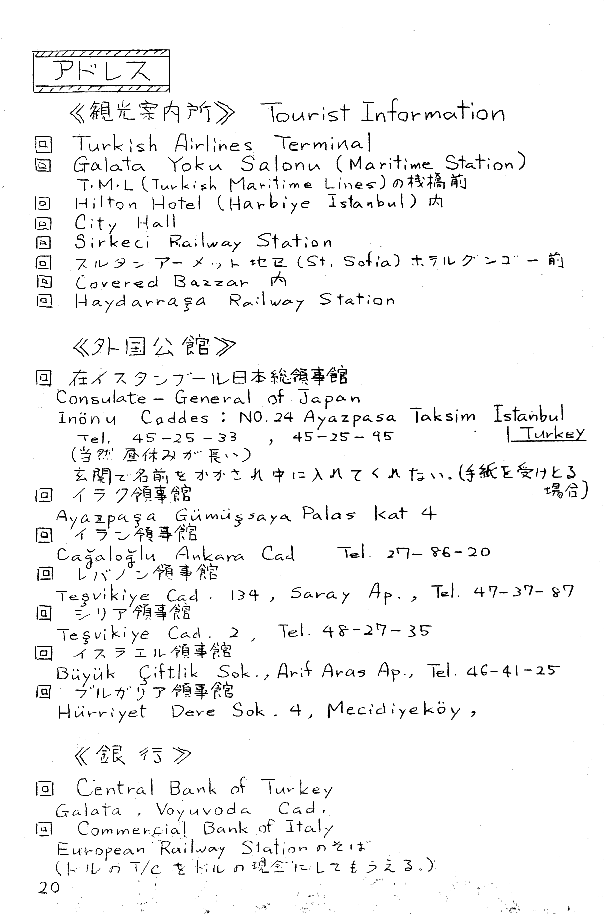 アドレス
《観光案内所》 Tourist Information
Turkish Airlines Terminal
Galata Yoku Salonu (Maritime Station)
T.M.L (Turkish Maritime Lines)の桟橋前
Hilton Hotel (Harbiye Istanbul) 内
City Hall
Sirkeci Railway Station
スルタンアーメット地区 (St. Sofia) ホテルグンゴー前
Covered Bazzar 内
Haydarraşa Railway Station
《外国公館》
在イスタンブール日本総領事館
Consulate - General of Japan
Inönu Caddes : NO.24 Ayazpasa Taksim Istanbul
Tel. 45-25-33 , 45-25-95 Turkey
(当然昼休みが長い)
玄関で名前をかかされ中に入れてくれない。(手紙を受けとる
場合)
イラク領事館
Ayazpaşa Gümüşsaya Palas kat 4
イラン領事館
Cağaloğlu Ankara Cad Tel. 27-86-20
レバノン領事館
Teşvikiye Cad. 134, Saray Ap., Tel. 47-37-87
シリア領事館
Teşvikiye Cad. 2, Tel. 48-27-35
イスラエル領事館
Büyük Çiftlik Sok., Arif Aras Ap., Tel. 46-41-25
ブルガリア領事館
Hürriyet Dere Sok. 4, Mecidiyeköy,
《銀行》
Central Bank of Turkey
Galata, Voyuvoda Cad.
Commercial Bank of Italy
European Railway Stationのそば
(ドルのT/Cをドルの現金にしてもらえる。)
20